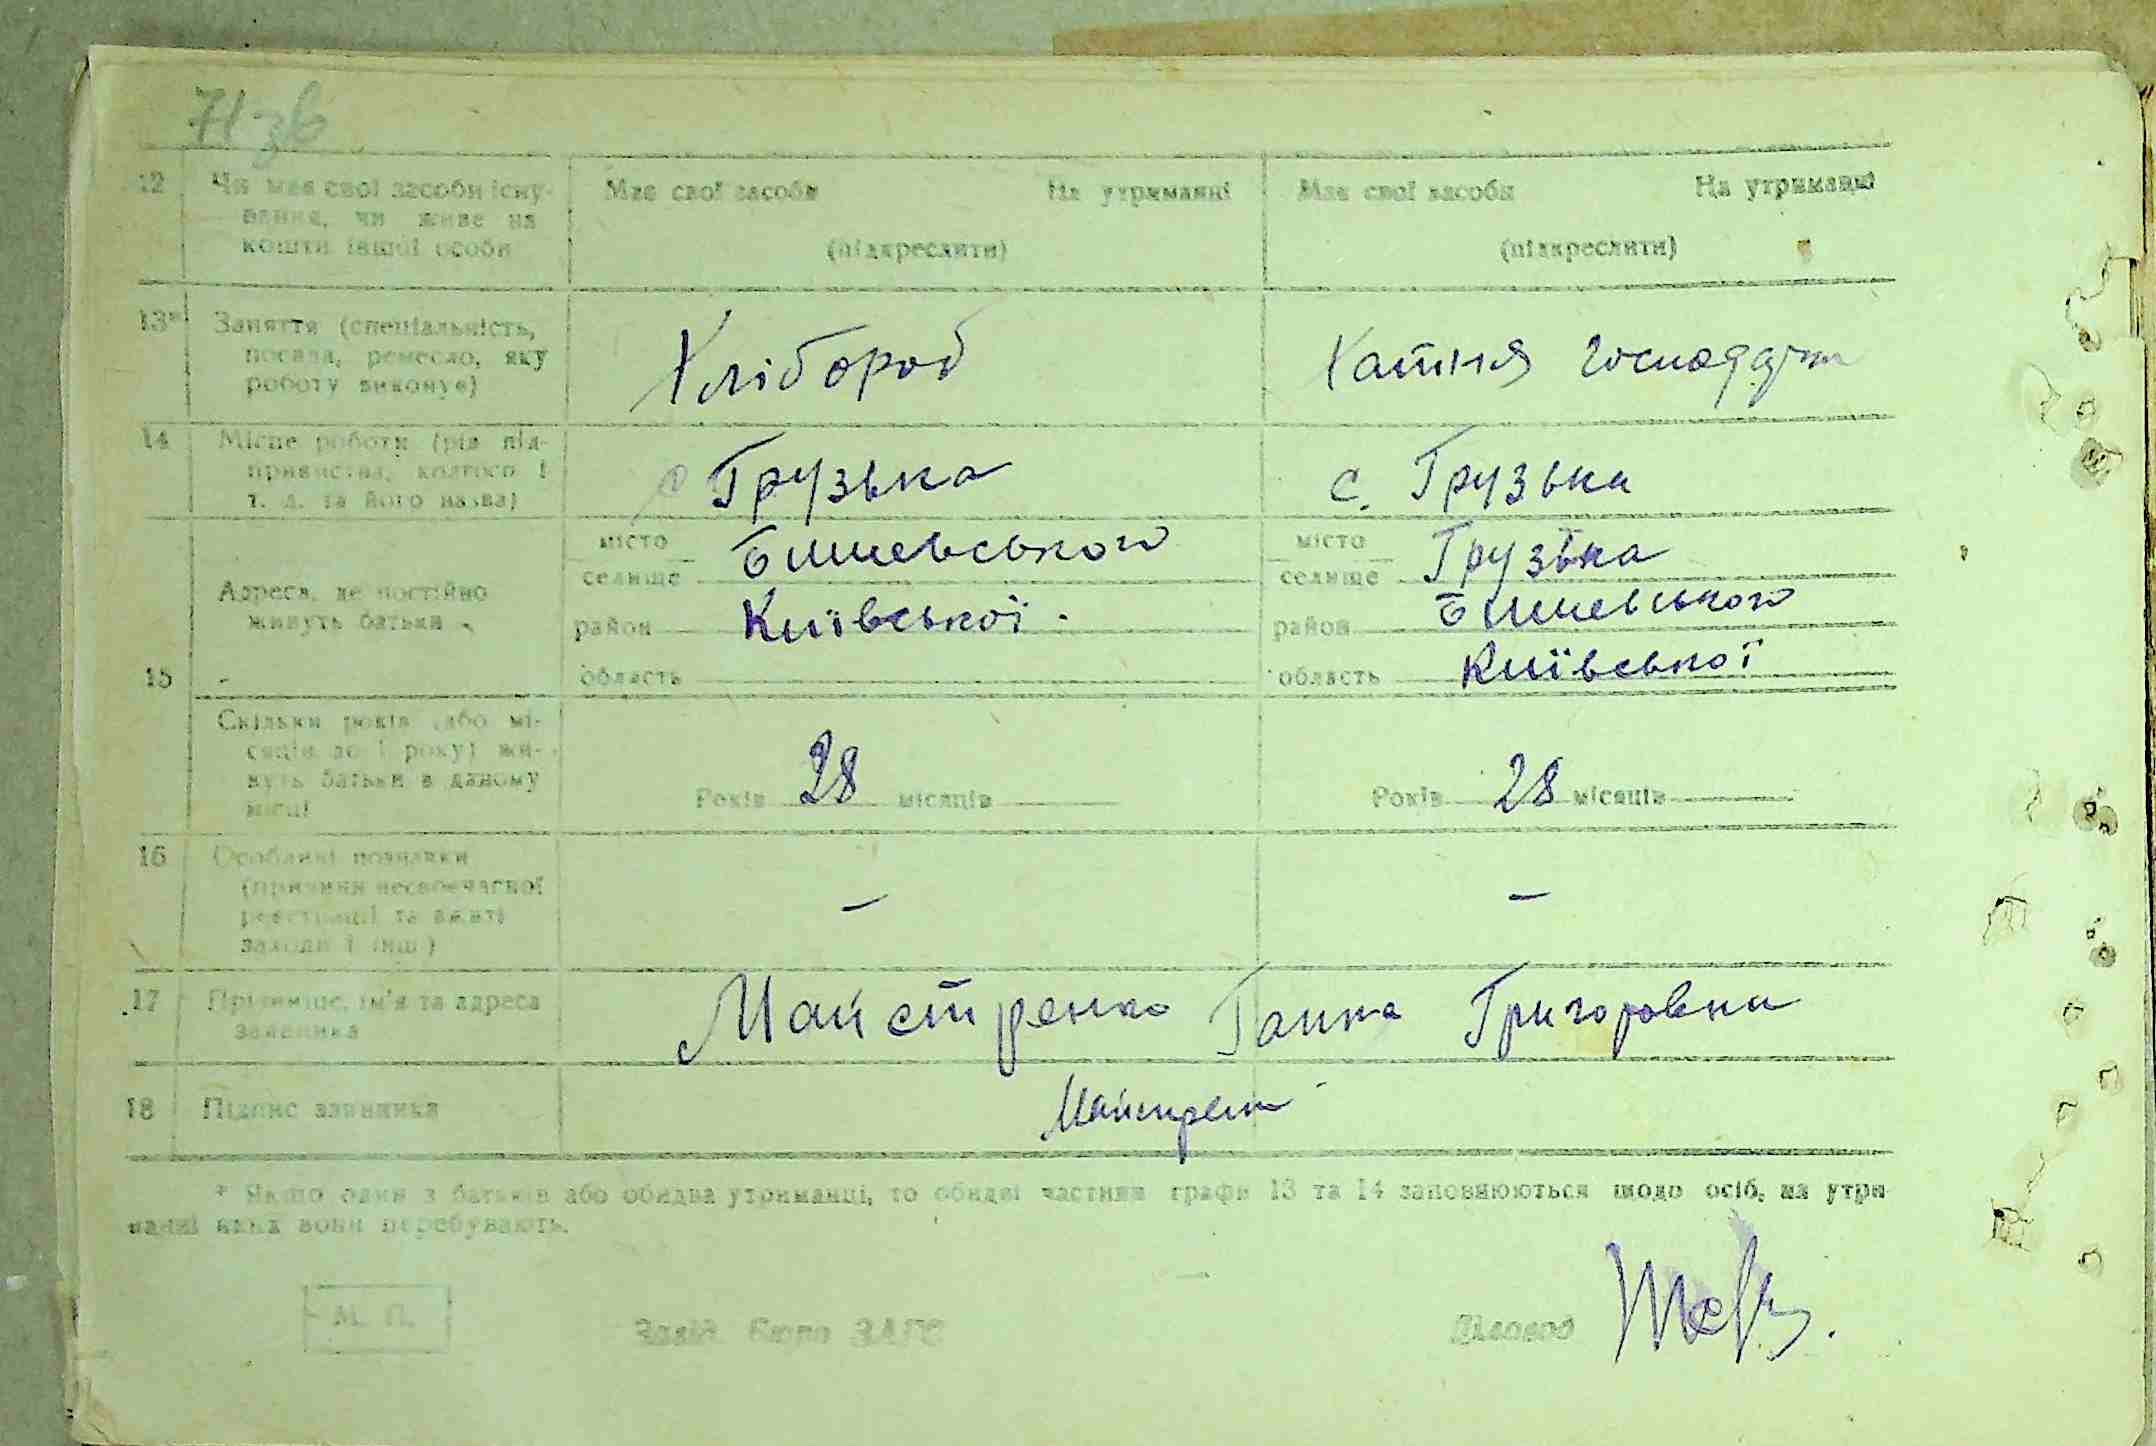 71 зв
12 Чи має свої засоби існу- Має свої засоби На утриманні Має свої засоби На утриманні
вання, чи живе на
кошти іншої особи (підкреслити) (підкреслити)
13* Заняття (спеціальність,
посада, ремесло, яку Хлібороб Хатня господарк
роботу виконує)
14 Місце роботи (рід під-
приємства, колгосп і с Грузька с. Грузька
т. д. та його назва)
місто Бишевського місто Грузька
Адреса, де постійно селище селище
живуть батьки район Київської. район Бишевського
15 область область Київської
Скільки років (або мі-
сяців до 1 року) жи-
вуть батьки в даному Років 28 місяців Років 28 місяців
місці
16 Особливі познавки
(причини несвоєчасної – –
реєстрації та вжиті
заходи і інш.)
17 Прізвище, ім'я та адреса Майстренко Ганна Григоровна
заявника
18 Підпис заявника
* Якщо один з батьків або обидва утриманці, то обидві частини графи 13 та 14 заповнюються щодо осіб, на утри-
манні яких вони перебувають.
М. П. Завід. бюро ЗАГС Діловод